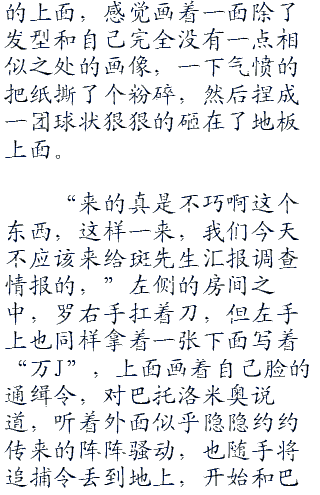 的上面，感觉画着一面除了
发型和自己完全没有一点相
似之处的画像，一下气愤的
把纸撕了个粉碎，然后捏成
一团球状狠狠的砸在了地板
上面。
“来的真是不巧啊这个
东西，这样一来，我们今天
不应该来给斑先生汇报调查
情报的，”左侧的房间之
中，罗右手扛着刀，但左手
上也同样拿着一张下面写着
“万J”，上面画着自己脸的
通缉令，对巴托洛米奥说
道，听着外面似乎隐隐约约
传来的阵阵骚动，也随手将
追捕令丢到地上，开始和巴